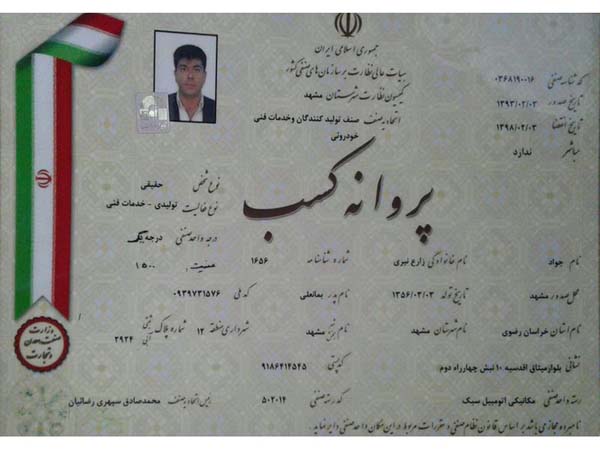 جمهوری اسلامی ایران
هیات عالی نظارت بر سازمان های صنفی کشور
کمیسیون نظارت شهرستان مشهد
اتحادیه صنف صنف تولید کنندگان وخدمات فنی
خودروئی
کد شناسه صنفی ۰۳۶۸۱۹۰۰۱۶
تاریخ صدور ۱۳۹۳/۰۲/۰۳
تاریخ انقضا ۱۳۹۸/۰۲/۰۳
مباشر ندارد
پروانه کسب
نوع شخص حقیقی
نوع فعالیت تولیدی - خدمات فنی
درجه واحد صنفی درجه یک
۱۵۰۰
نام جواد نام خانوادگی زارع نیری شماره شناسنامه ۱۶۵۶
محل صدور مشهد تاریخ تولد ۱۳۵۶/۰۳/۰۳ نام پدر یمانعلی کد ملی ۰۹۳۹۷۳۱۵۷۶
نام استان خراسان رضوی نام شهرستان مشهد نام بخش مشهد شهرداری منطقه ۱۲ شماره پلاک ثبتی آبی ۲۹۲۴
نشانی بلوارمیثاق اقدسیه ۱۰ نبش چهارراه دوم کدپستی ۹۱۸۶۴۱۴۵۴۵
رسته واحد صنفی مکانیکی اتومبیل سبک کد رسته صنفی ۵۰۲۰۱۴ رئیس اتحادیه صنف محمدصادق سپهری رضائیان
نامبرده مجاز می باشد بر اساس قانون نظام صنفی و مقررات مربوط در این مکان واحد صنفی دایر نماید .
وزارت
صنعت، معدن
و تجارت